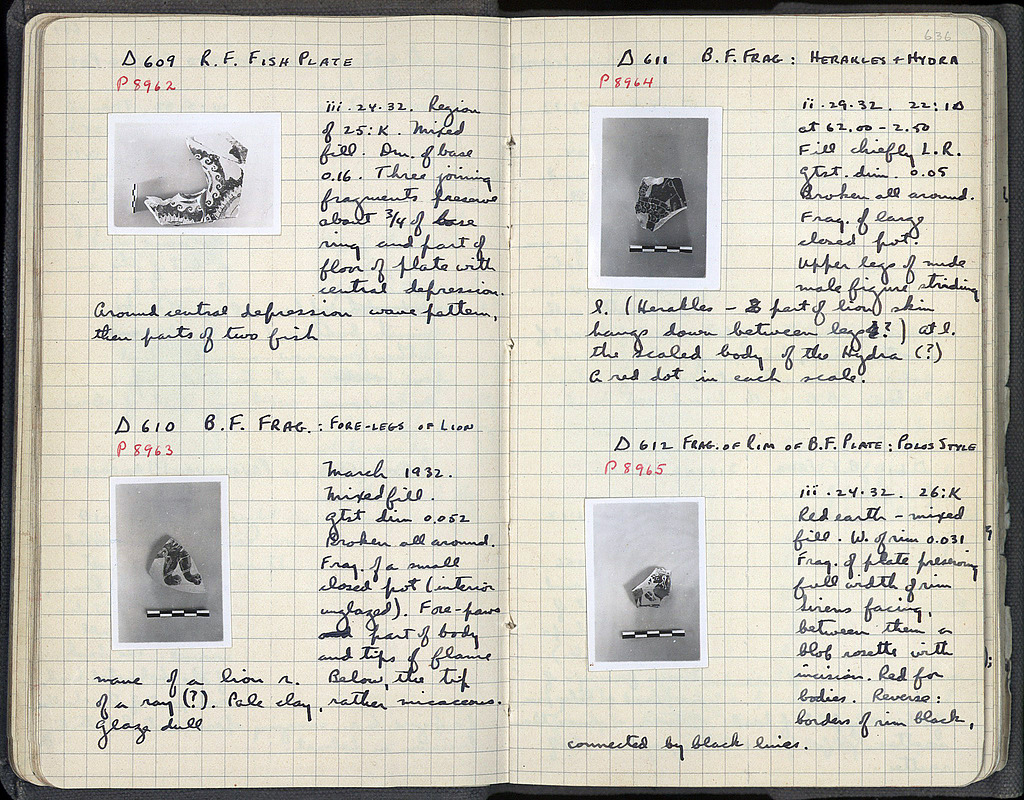 Δ 609 R.F. FISH PLATE
P 8962
iii.24.32. Region
of 25:K. Mixed
fill. Dm. of base
0.16. Three joining
fragments preserve
about 3/4 of base
ring and part of
floor of plate with
central depression.
Around central depression wave pattern,
then parts of two fish
Δ 610 B.F. FRAG.: FORE-LEGS OF LION
P 8963
March 1932.
Mixed fill.
gtst dim 0.052
Broken all around.
Frag. of a small
closed pot (interior
unglazed). Fore-paws
and part of body
and tips of flame
mane of a lion r. Below, the tip
of a ray (?). Pale clay, rather micaceous.
Glaze dull
636
Δ 611 B.F. FRAG: HERAKLES + HYDRA
P 8964
ii.29.32. 22:10
at 62.00-2.50
Fill chiefly L.R.
gtst. dim. 0.05
Broken all around.
Frag. of large
closed pot.
Upper legs of nude
male figure striding
l. (Herakles - part of lion skin
hangs down between legs?) at l.
the scaled body of the Hydra (?)
A red dot in each scale.
Δ 612 FRAG. OF RIM OF B.F. PLATE: POLOS STYLE
P 8965
iii.24.32. 26:K
Red earth - mixed
fill. W. of rim 0.031
Frag. of plate preserving
full width of rim
Sirens facing,
between them a
blob rosette with
incision. Red for
bodies. Reverse:
borders of rim black,
connected by black lines.